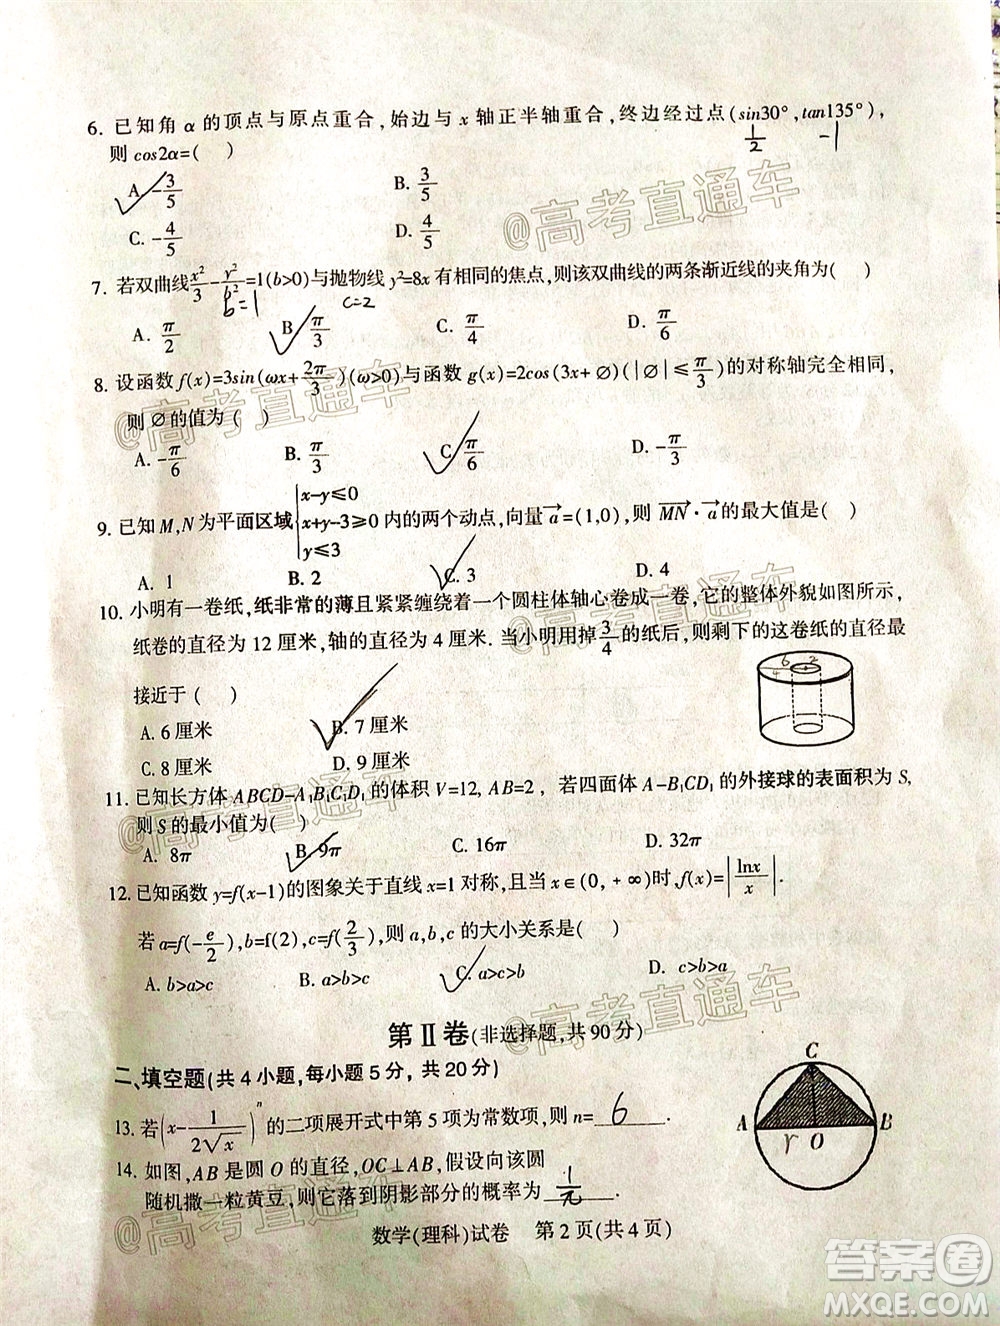 6. 已知角 α 的顶点与原点重合，始边与 x 轴正半轴重合，终边经过点(sin30°,tan135°),
1/2 -1
则 cos2α=( )
A. -3/5 B. 3/5
C. -4/5 D. 4/5
7. 若双曲线x²/3-y²/b²=1(b>0)与抛物线 y²=8x 有相同的焦点,则该双曲线的两条渐近线的夹角为( )
b=1 c=2
A. π/2 B. π/3 C. π/4 D. π/6
8. 设函数 f(x)=3sin(ωx+2π/3)(ω>0)与函数 g(x)=2cos(3x+∅)(|∅|≤π/3)的对称轴完全相同,
则 ∅的值为 ( )
A. -π/6 B. π/3 C. π/6 D. -π/3
9. 已知 M,N 为平面区域{x-y≤0 x+y-3≥0 y≤3 内的两个动点,向量a=(1,0),则 MN·a的最大值是( )
A. 1 B. 2 C. 3 D. 4
10. 小明有一卷纸,纸非常的薄且紧紧缠绕着一个圆柱体轴心卷成一卷,它的整体外貌如图所示,
纸卷的直径为 12 厘米,轴的直径为 4 厘米. 当小明用掉3/4的纸后,则剩下的这卷纸的直径最
接近于 ( )
6 2
4
A. 6 厘米 B. 7 厘米
C. 8 厘米 D. 9 厘米
11. 已知长方体 ABCD-A₁B₁C₁D₁ 的体积 V=12, AB=2，若四面体 A-B₁CD₁ 的外接球的表面积为 S,
则 S 的最小值为( )
A. 8π B. 9π C. 16π D. 32π
12. 已知函数 y=f(x-1)的图象关于直线 x=1 对称,且当 x∈(0,+∞)时,f(x)=|lnx/x|.
若 a=f(-e/2),b=f(2),c=f(2/3),则 a,b,c 的大小关系是( )
A. b>a>c B. a>b>c C. a>c>b D. c>b>a
第Ⅱ卷(非选择题,共 90 分)
二、填空题(共 4 小题,每小题 5 分，共 20 分)
13. 若(x-1/(2√x))ⁿ 的二项展开式中第 5 项为常数项,则 n= 6 .
14. 如图,AB 是圆 O 的直径,OC⊥AB,假设向该圆
随机撒一粒黄豆,则它落到阴影部分的概率为 1/π .
C
A r O B
数学(理科)试卷 第 2 页(共 4 页)
@高考直通车
@高考直通车
@高考直通车
@高考直通车
@高考直通车
@高考直通车
答案圈
MXQE.COM